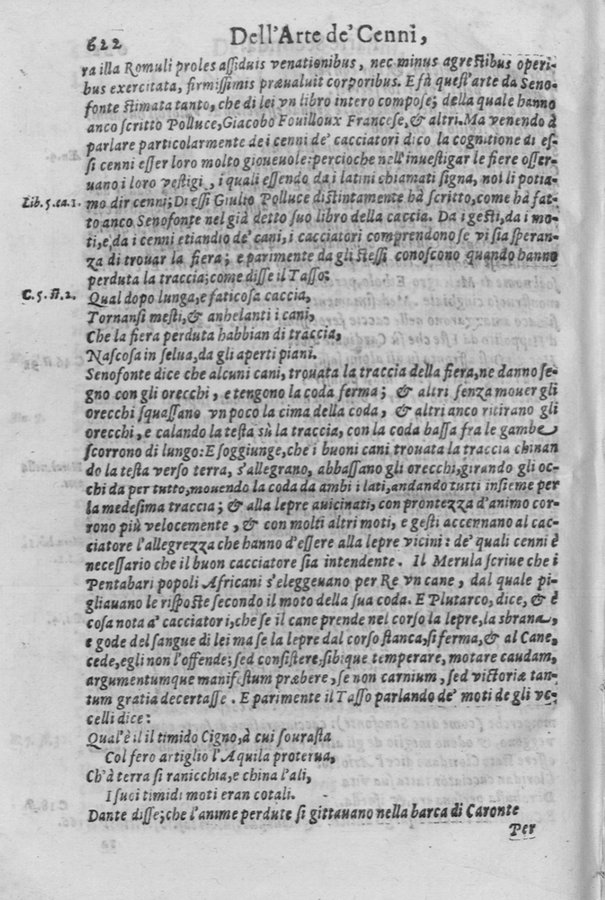 622 Dell'Arte de' Cenni,
ra illa Romuli proles assiduis venationibus, nec minus agrestibus operi-
bus exercitata, firmissimis præualuit corporibus. E fù quest'arte da Seno-
fonte stimata tanto, che di lei vn libro intero compose; della quale hanno
anco scritto Polluce, Giacobo Fouilloux Francese, & altri. Ma venendo à
parlare particolarmente de i cenni de' cacciatori dico la cognitione di es-
si cenni esser loro molto gioueuole: percioche nell'inuestigar le fiere osser-
uano i loro vestigi, i quali essendo da i latini chiamati signa, noi li potia-
Lib. 5. ca. 1. mo dir cenni; Di essi Giulio Polluce distintamente hà scritto, come hà fat-
to anco Senofonte nel già detto suo libro della caccia. Da i gesti, da i mo-
ti, e, da i cenni etiandio de' cani, i cacciatori comprendono se vi sia speran-
za di trouar la fiera; e parimente da gli stessi conoscono quando hanno
perduta la traccia; come disse il Tasso:
C. 5. st. 2. Qual dopo lunga, e faticosa caccia,
Tornansi mesti, & anhelanti i cani,
Che la fiera perduta habbian di traccia,
Nascosa in selua, da gli aperti piani.
Senofonte dice che alcuni cani, trouata la traccia della fiera, ne danno se-
gno con gli orecchi, e tengono la coda ferma; & altri senza mouer gli
orecchi squassano vn poco la cima della coda, & altri anco ritirano gli
orecchi, e calando la testa sù la traccia, con la coda bassa fra le gambe
scorrono di lungo: E soggiunge, che i buoni cani trouata la traccia chinan
do la testa verso terra, s'allegrano, abbassano gli orecchi, girando gli oc-
chi da per tutto, mouendo la coda da ambi i lati, andando tutti insieme per
la medesima traccia; & alla lepre auicinati, con prontezza d'animo cor-
rono più velocemente, & con molti altri moti, e gesti accernano al cac-
ciatore l'allegrezza che hanno d'essere alla lepre vicini: de' quali cenni è
necessario che il buon cacciatore sia intendente. Il Merula scriue che i
Pentabari popoli Africani s'eleggeuano per Re vn cane, dal quale pi-
gliauano le risposte secondo il moto della sua coda. E Plutarco, dice, & è
cosa nota a' cacciatori, che se il cane prende nel corso la lepre, la sbrana,
e gode del sangue di lei ma se la lepre dal corso stanca, si ferma, & al Cane,
cede, egli non l'offende; sed consistere, sibique temperare, motare caudam,
argumentumque manifestum præbere, se non carnium, sed victoriæ tan-
tum gratia decertasse. E parimente il Tasso parlando de' moti de gli vc-
celli dice:
Qual'è il il timido Cigno, à cui sourasta
Col fero artiglio l'Aquila proterua,
Ch'à terra si ranicchia, e china l'ali,
I suoi timidi moti eran cotali.
Dante disse; che l'anime perdute si gittauano nella barca di Caronte
Per